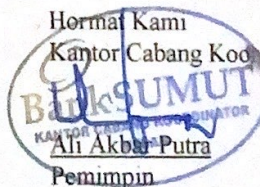 Hormat Kami
Kantor Cabang Koo
Bank SUMUT
KANTOR CABANG KOORDINATOR
Ali Akbar Putra
Pemimpin